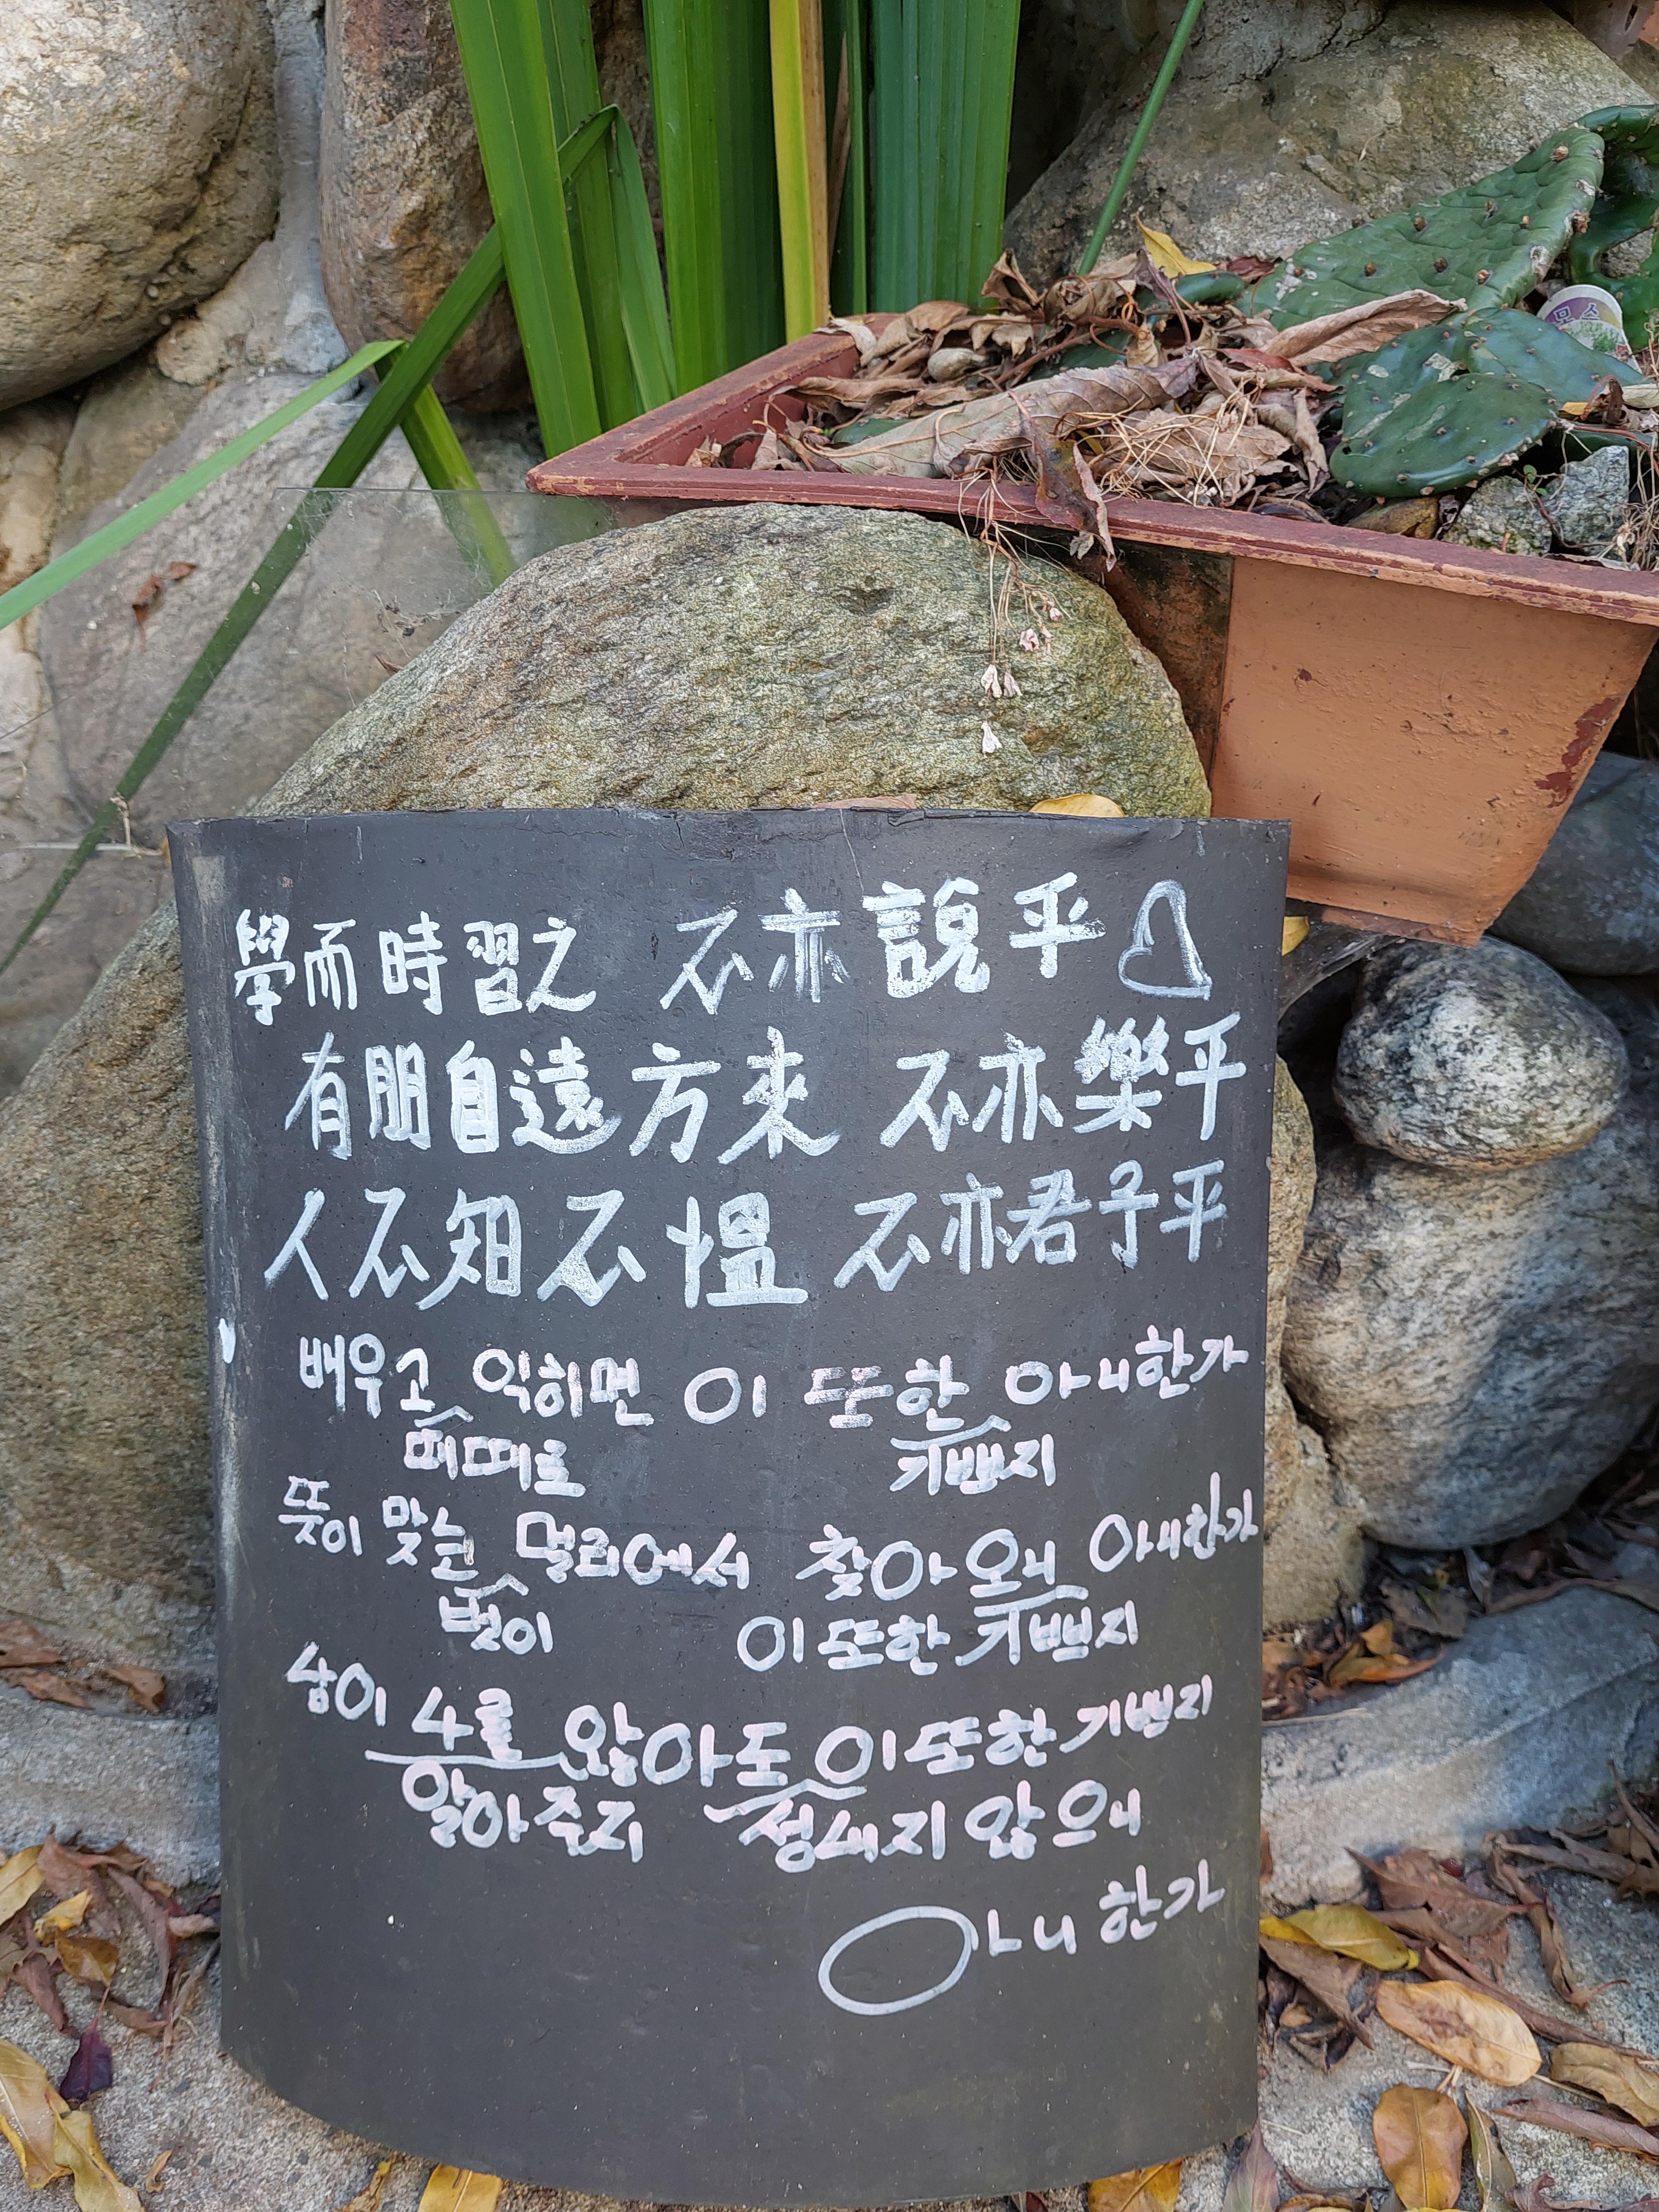 모스
學而時習之 不亦說乎
有朋自遠方來 不亦樂乎
人不知不慍 不亦君子乎
배우고 익히면 이 또한 아니한가
때때로 기쁘지
뜻이 맞는 멀리에서 찾아오니 아니한가
벗이 이 또한 기쁘지
남이 나를 않아도 이 또한 기쁘지
알아주지 성내지 않으니
아니한가